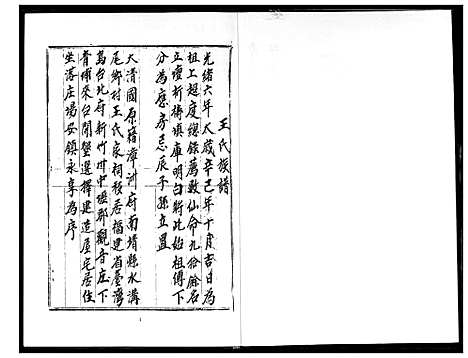 王氏族譜
光緒六年太歲辛己年十月吉日為
祖上超度總錄薦數仙命九拾餘名
立壇祈禱填庫明白將此始祖傳下
分為應房忌辰子孫立置
大清國原籍漳州府南靖縣水溝
尾鄉村王氏家祠移居福建省臺灣
島台北府新竹州中壢郡觀音庄下
青埔來台開墾選擇建造屋宅居住
坐落庄場安鎮永享為序